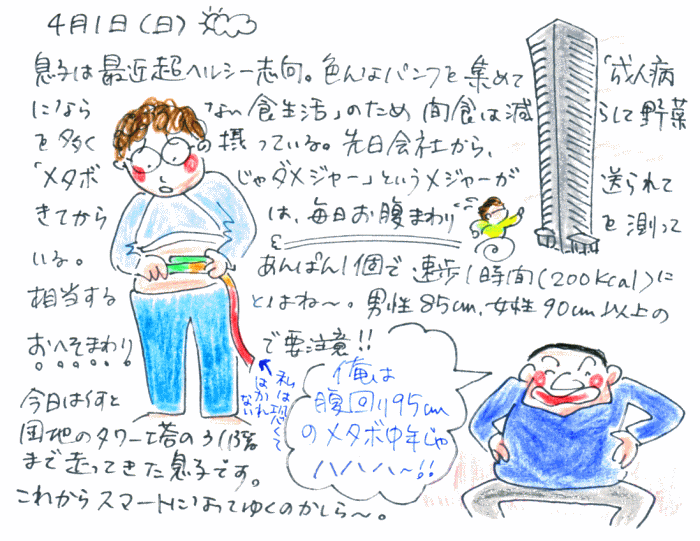 4月1日(日)
息子は最近超ヘルシー志向。色んなパンフを集めて「成人病
にならない食生活」のため肉食は減らして野菜
を多くの摂っている。先日会社から、
「メタボじゃダメジャー」というメジャーが送られて
きてからは、毎日お腹まわりを測って
いる。あんぱん1個で速歩1時間(200kcal)に
相当するとはね〜。男性85cm、女性90cm以上の
おへそまわりで要注意!!
私は恐くて
はかれ
ない
今日は
団地のタワー塔の
まで走ってきた息子です。
これからスマートになってゆくのかしら〜。
俺は
腹回り95cm
のメタボ中年じゃ
ハハハ〜!!